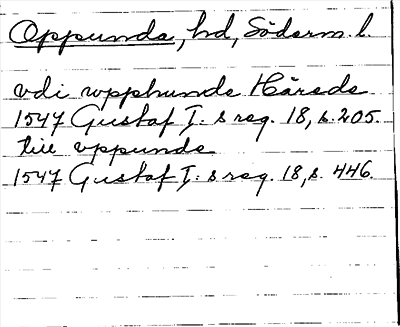 Oppunda, hd, Söderm. l.
vdi wpphunde Härede
1547 Gustaf I:s reg. 18, s. 205.
till vppunde
1547 Gustaf I:s reg. 18, s. 446.